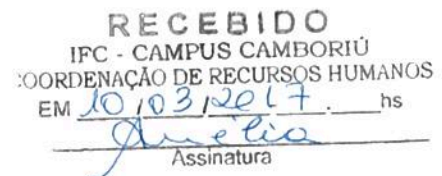 RECEBIDO
IFC - CAMPUS CAMBORIÚ
COORDENAÇÃO DE RECURSOS HUMANOS
EM 10/03/2017. ___hs
Amélia
Assinatura